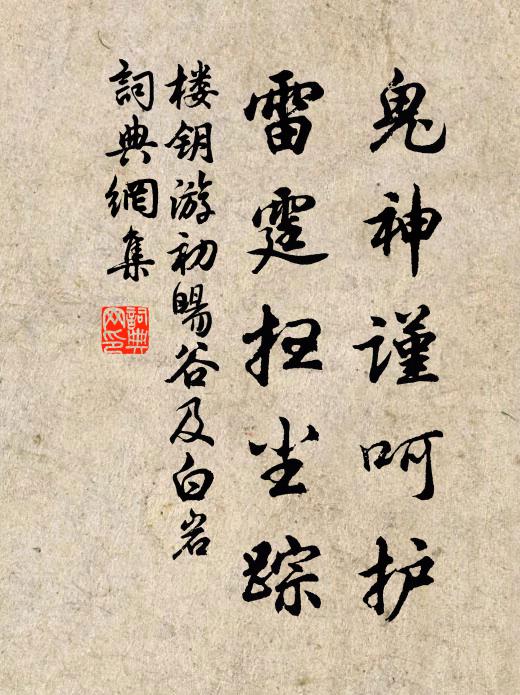 鬼神谨呵护
雷霆扫尘踪
楼钥游初旸谷及白岩
詞典網集
詞典网印